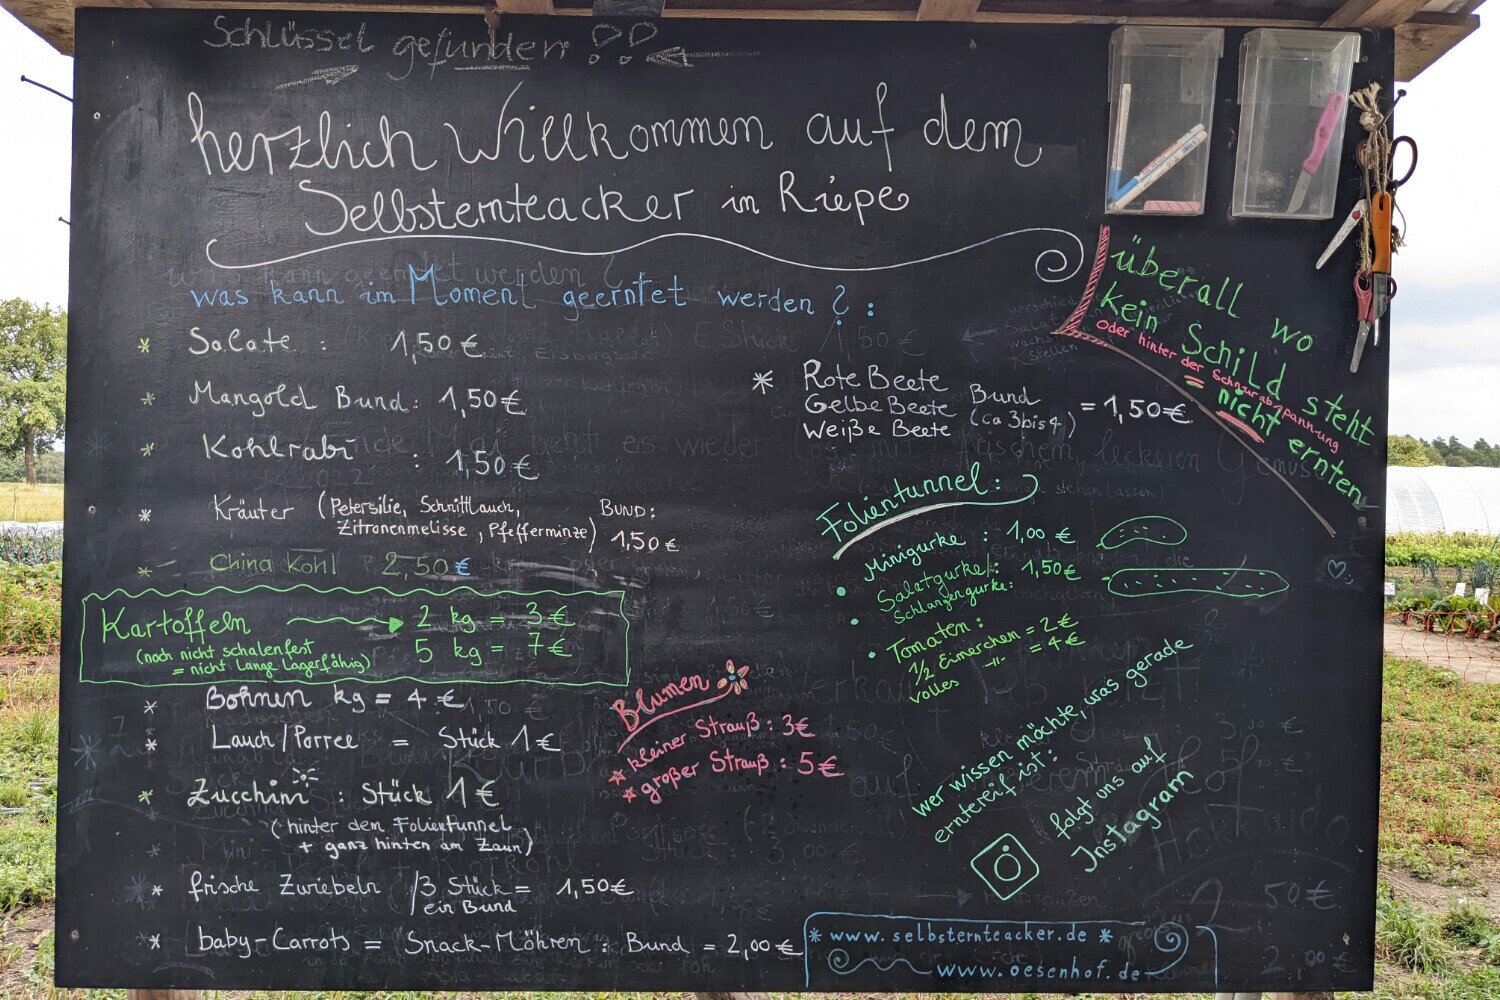 Schlüssel gefunden !!
herzlich Willkommen auf dem
Selbsternteacker in Riepe
was kann im Moment geerntet werden ? :
* Salate : 1,50 €
* Mangold Bund : 1,50 €
* Kohlrabi : 1,50 €
* Kräuter (Petersilie, Schnittlauch,
Zitronenmelisse, Pfefferminze)
BUND :
1,50 €
* China Kohl 2,50 €
Kartoffeln → 2 kg = 3 €
(noch nicht schalenfest
= nicht lange lagerfähig)
5 kg = 7 €
* Bohnen kg = 4 €
* Lauch/Porree = Stück 1 €
* Zucchini : Stück 1 €
(hinter dem Folientunnel
+ ganz hinten am Zaun)
* frische Zwiebeln /3 Stück = 1,50 €
ein Bund
* baby-Carrots = Snack-Möhren : Bund = 2,00 €
* Rote Beete
Gelbe Beete
Weiße Beete
Bund
(ca 3 bis 4)
= 1,50 €
überall wo
kein Schild steht
oder hinter der Schnurabspannung
nicht ernten
Folientunnel :
Minigurke : 1,00 €
• Salatgurke/ : 1,50 €
Schlangengurke :
• Tomaten :
1/2 Eimerchen = 2 €
volles -"- = 4 €
Blumen
* kleiner Strauß : 3 €
* großer Strauß : 5 €
wer wissen möchte, was gerade
erntereif ist :
folgt uns auf
Instagram
* www.selbsternteacker.de *
www.oesenhof.de